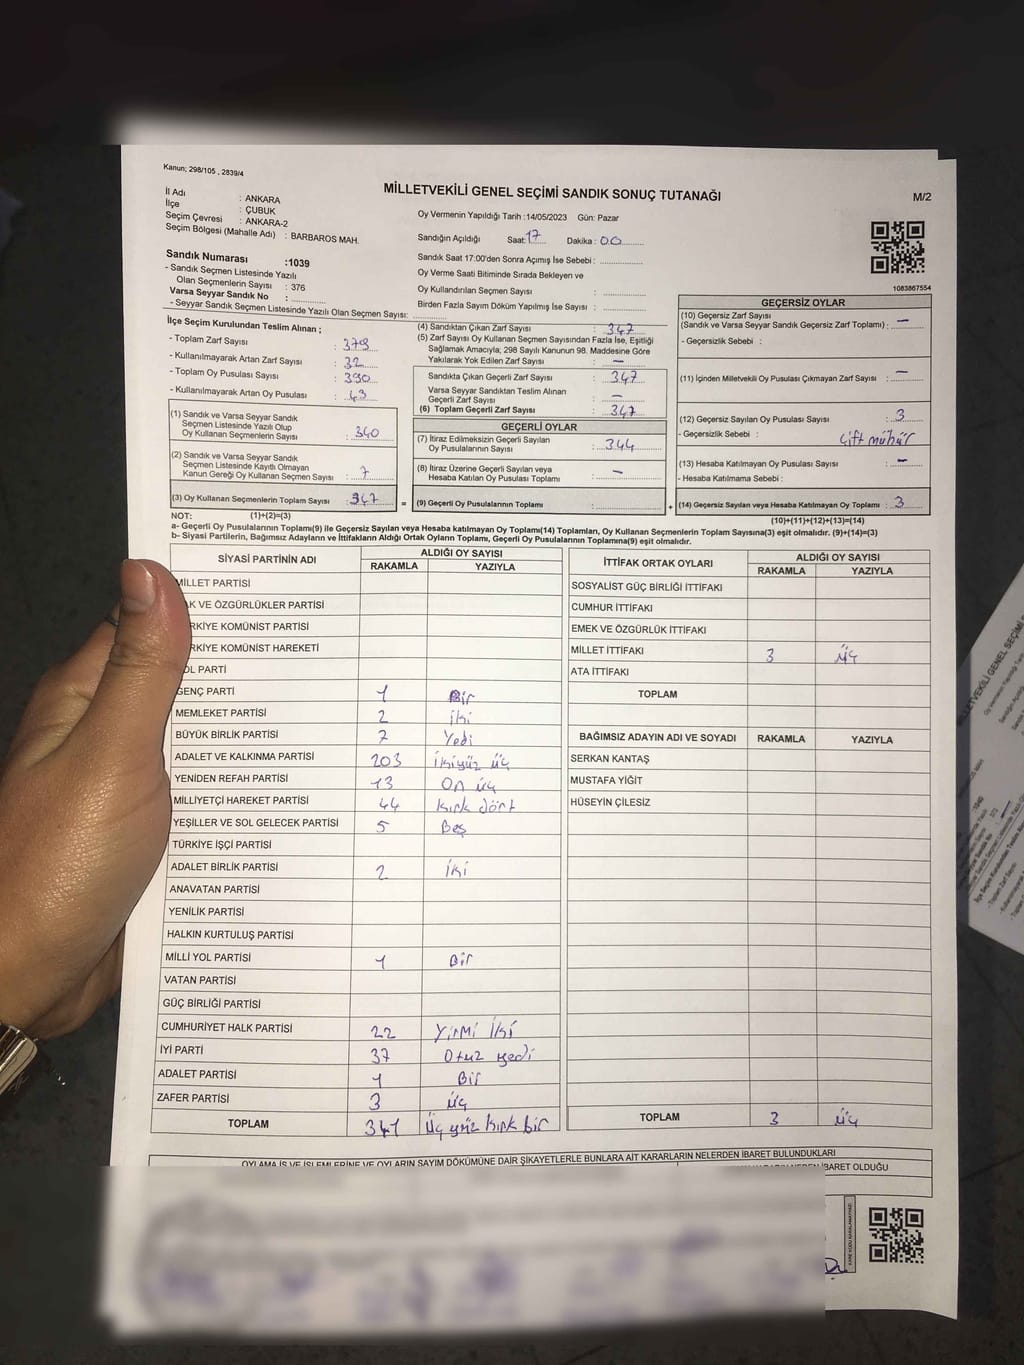 Kanun; 298/105 , 2839/4
MİLLETVEKİLİ GENEL SEÇİMİ SANDIK SONUÇ TUTANAĞI
M/2
İl Adı : ANKARA
İlçe : ÇUBUK
Seçim Çevresi : ANKARA-2
Seçim Bölgesi (Mahalle Adı) : BARBAROS MAH.
Oy Vermenin Yapıldığı Tarih :14/05/2023 Gün: Pazar
Sandığın Açıldığı Saat: 17 Dakika : 00
Sandık Saat 17:00'den Sonra Açımış İse Sebebi :
Oy Verme Saati Bitiminde Sırada Bekleyen ve
Oy Kullandırılan Seçmen Sayısı :
Birden Fazla Sayım Döküm Yapılmış İse Sayısı :
Sandık Numarası :1039
- Sandık Seçmen Listesinde Yazılı
Olan Seçmenlerin Sayısı : 376
Varsa Seyyar Sandık No :
- Seyyar Sandık Seçmen Listesinde Yazılı Olan Seçmen Sayısı:
1083867554
İlçe Seçim Kurulundan Teslim Alınan ;
- Toplam Zarf Sayısı : 379
- Kullanılmayarak Artan Zarf Sayısı : 32
- Toplam Oy Pusulası Sayısı : 390
- Kullanılmayarak Artan Oy Pusulası : 43
(1) Sandık ve Varsa Seyyar Sandık
Seçmen Listesinde Yazılı Olup
Oy Kullanan Seçmenlerin Sayısı : 340
(2) Sandık ve Varsa Seyyar Sandık
Seçmen Listesinde Kayıtlı Olmayan
Kanun Gereği Oy Kullanan Seçmen Sayısı : 7
(3) Oy Kullanan Seçmenlerin Toplam Sayısı : 347
(4) Sandıktan Çıkan Zarf Sayısı : 347
(5) Zarf Sayısı Oy Kullanan Seçmen Sayısından Fazla İse, Eşitliği
Sağlamak Amacıyla; 298 Sayılı Kanunun 98. Maddesine Göre
Yakılarak Yok Edilen Zarf Sayısı : –
Sandıkta Çıkan Geçerli Zarf Sayısı : 347
Varsa Seyyar Sandıktan Teslim Alınan
Geçerli Zarf Sayısı : –
(6) Toplam Geçerli Zarf Sayısı : 347
GEÇERLİ OYLAR
(7) İtiraz Edilmeksizin Geçerli Sayılan
Oy Pusulasının Sayısı : 344
(8) İtiraz Üzerine Geçerli Sayılan veya
Hesaba Katılan Oy Pusulası Toplamı : –
= (9) Geçerli Oy Pusulalarının Toplamı :
GEÇERSİZ OYLAR
(10) Geçersiz Zarf Sayısı
(Sandık ve Varsa Seyyar Sandık Geçersiz Zarf Toplamı) : –
- Geçersizlik Sebebi :
(11) İçinden Milletvekili Oy Pusulası Çıkmayan Zarf Sayısı : –
(12) Geçersiz Sayılan Oy Pusulası Sayısı : 3
- Geçersizlik Sebebi : Çift mühür
(13) Hesaba Katılmayan Oy Pusulası Sayısı : –
- Hesaba Katılmama Sebebi :
+ (14) Geçersiz Sayılan veya Hesaba Katılmayan Oy Toplamı : 3
NOT: (1)+(2)=(3)
(10)+(11)+(12)+(13)=(14)
a- Geçerli Oy Pusulalarının Toplamı(9) ile Geçersiz Sayılan veya Hesaba katılmayan Oy Toplamı(14) Toplamları, Oy Kullanan Seçmenlerin Toplam Sayısına(3) eşit olmalıdır. (9)+(14)=(3)
b- Siyasi Partilerin, Bağımsız Adayların ve İttifakların Aldığı Ortak Oyların Toplamı, Geçerli Oy Pusulalarının Toplamına(9) eşit olmalıdır.
SİYASİ PARTİNİN ADI ALDIĞI OY SAYISI
RAKAMLA YAZIYLA
MİLLET PARTİSİ
AK VE ÖZGÜRLÜKLER PARTİSİ
RKİYE KOMÜNİST PARTİSİ
RKİYE KOMÜNİST HAREKETİ
OL PARTİ
GENÇ PARTİ 1 Bir
MEMLEKET PARTİSİ 2 iki
BÜYÜK BİRLİK PARTİSİ 7 Yedi
ADALET VE KALKINMA PARTİSİ 203 ikiyüz üç
YENİDEN REFAH PARTİSİ 13 On üç
MİLLİYETÇİ HAREKET PARTİSİ 44 kırk dört
YEŞİLLER VE SOL GELECEK PARTİSİ 5 Beş
TÜRKİYE İŞÇİ PARTİSİ
ADALET BİRLİK PARTİSİ 2 iki
ANAVATAN PARTİSİ
YENİLİK PARTİSİ
HALKIN KURTULUŞ PARTİSİ
MİLLİ YOL PARTİSİ 1 Bir
VATAN PARTİSİ
GÜÇ BİRLİĞİ PARTİSİ
CUMHURİYET HALK PARTİSİ 22 Yirmi iki
İYİ PARTİ 37 Otuz yedi
ADALET PARTİSİ 1 Bir
ZAFER PARTİSİ 3 üç
TOPLAM 341 üç yüz kırk bir
İTTİFAK ORTAK OYLARI ALDIĞI OY SAYISI
RAKAMLA YAZIYLA
SOSYALİST GÜÇ BİRLİĞİ İTTİFAKI
CUMHUR İTTİFAKI
EMEK VE ÖZGÜRLÜK İTTİFAKI
MİLLET İTTİFAKI 3 üç
ATA İTTİFAKI
TOPLAM
BAĞIMSIZ ADAYIN ADI VE SOYADI RAKAMLA YAZIYLA
SERKAN KANTAŞ
MUSTAFA YİĞİT
HÜSEYİN ÇİLESİZ
TOPLAM 3 üç
OYLAMA İŞ VE İŞLEMLERİNE VE OYLARIN SAYIM DÖKÜMÜNE DAİR ŞİKAYETLERLE BUNLARA AİT KARARLARIN NELERDEN İBARET BULUNDUKLARI
İBARET OLDUĞU